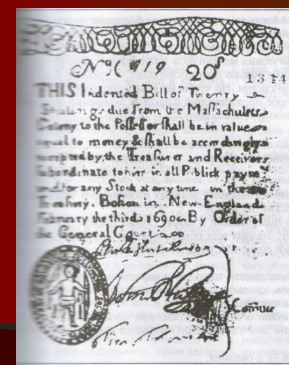 No (919 20s
1314
THIS Indented Bill of Twenty
Shillings due from the Massachusets
Colony to the Possessor shall be in value
equal to money & shall be accordingly
accepted by the Treasurer and Receivers
subordinate to him in all Publick paym^ts
and for any Stock at any time in the
Treasury. Boston in New-England
February the third 1690. By Order of
the General Court
Comitee